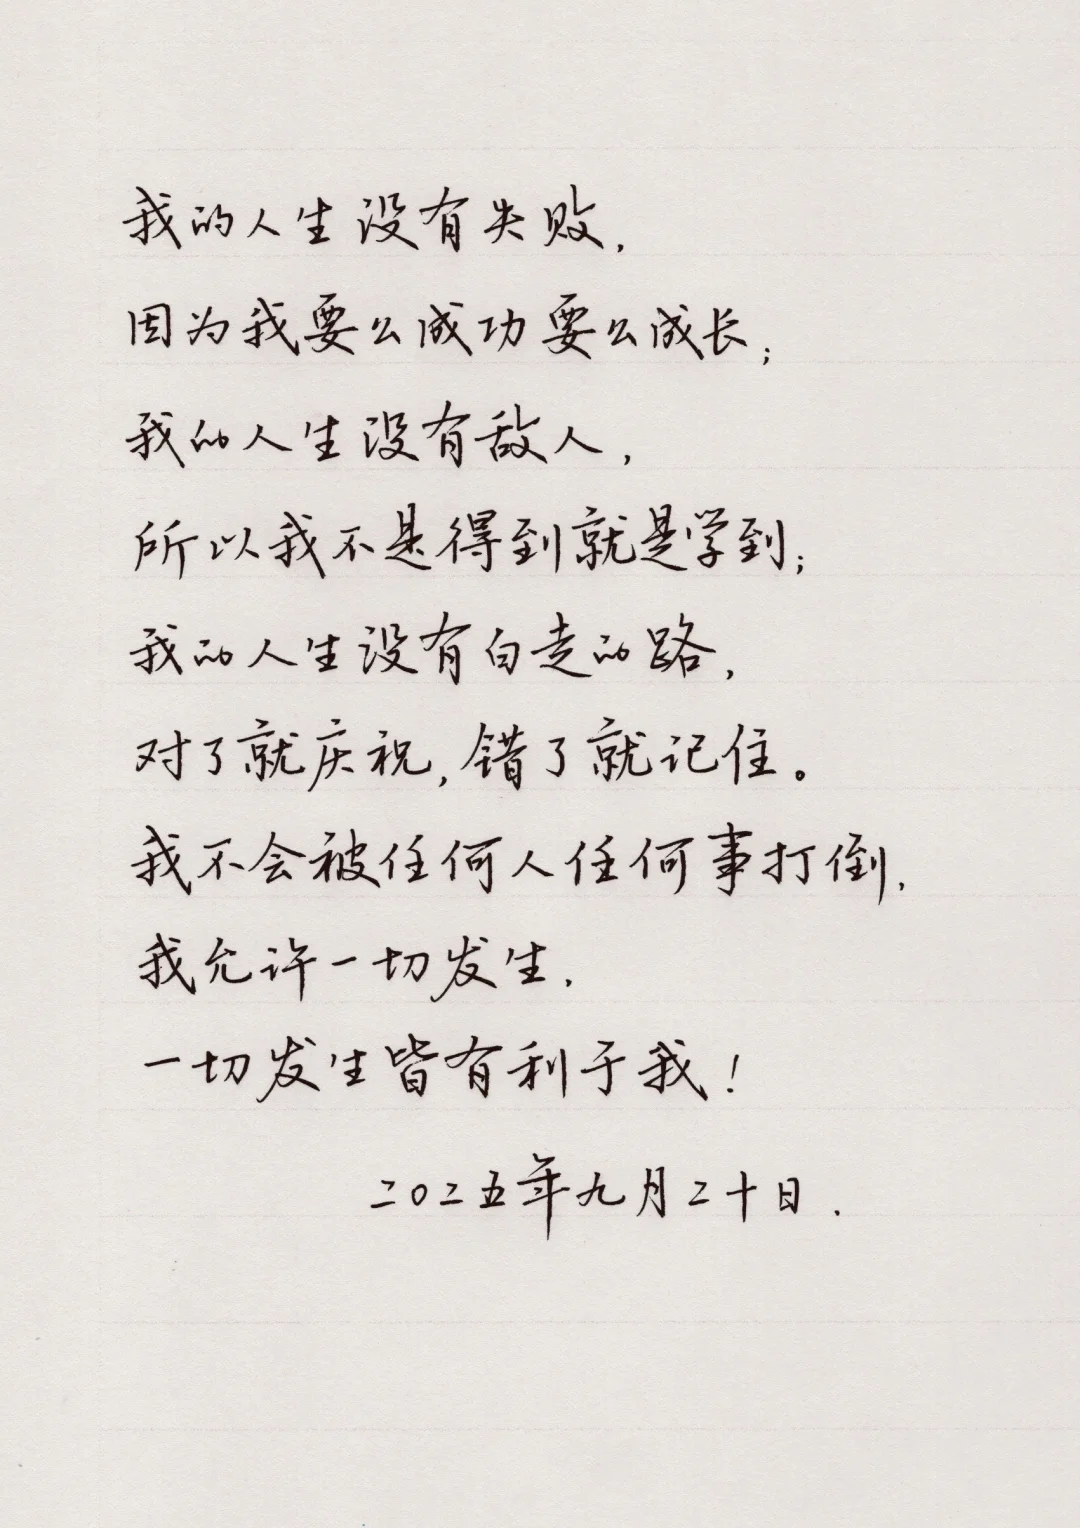 我的人生没有失败，
因为我要么成功要么成长；
我的人生没有敌人，
所以我不是得到就是学到；
我的人生没有白走的路，
对了就庆祝，错了就记住。
我不会被任何人任何事打倒，
我允许一切发生，
一切发生皆有利于我！
二〇二五年九月二十日.